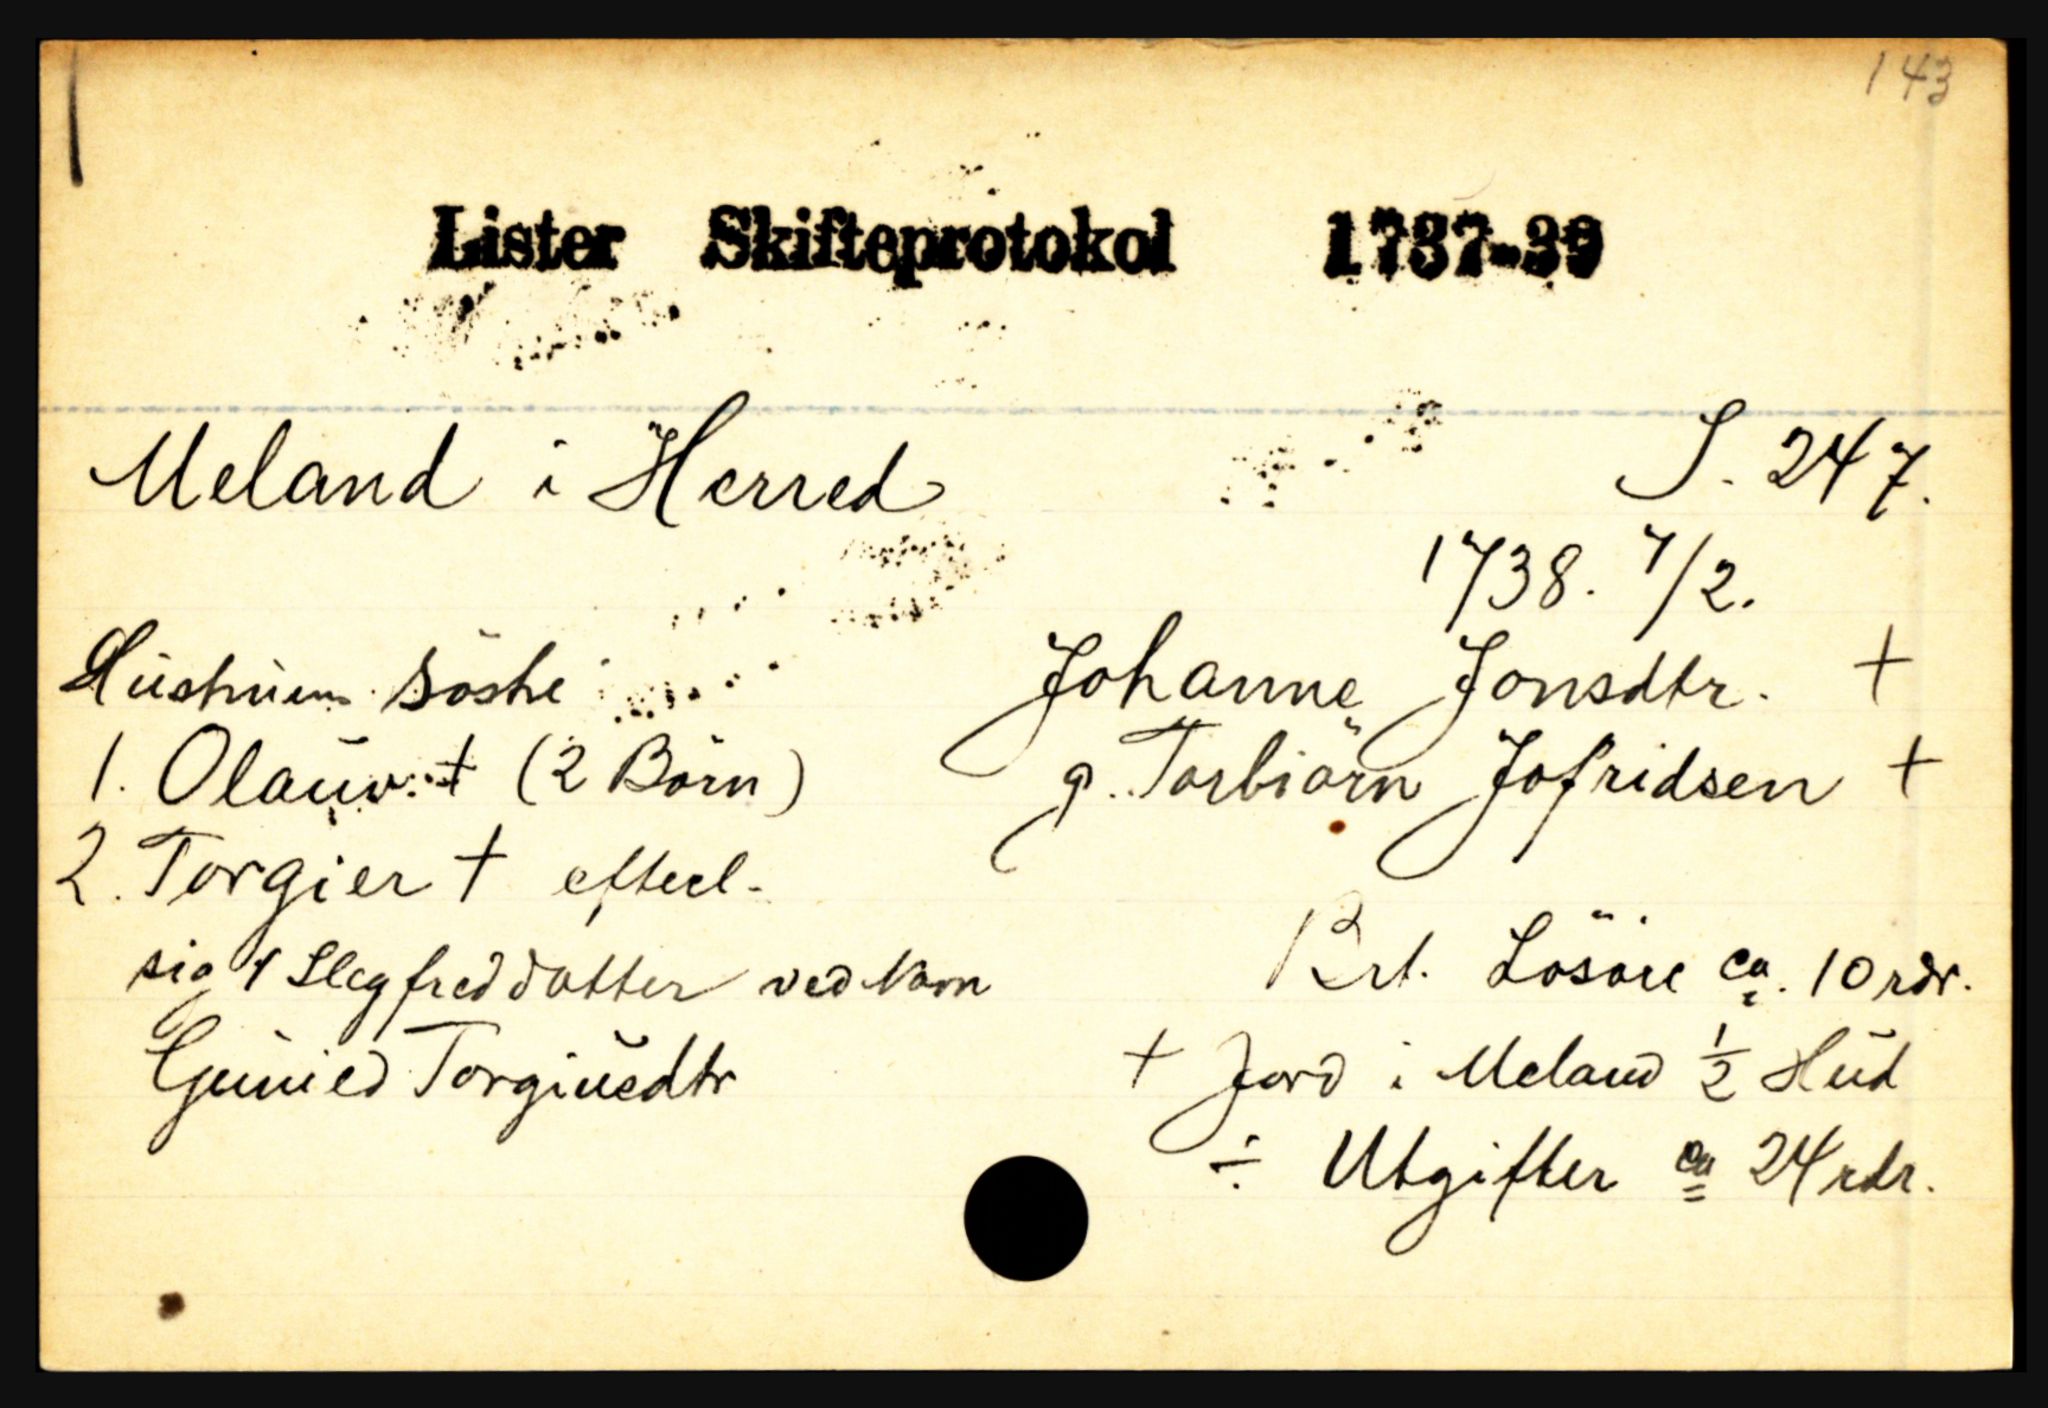 143
Lister Skifteprotokol 1737-39
Meland i Herred
S. 247.
1738. 7/2.
Johanne Jonsdtr. +
g. Torbiörn Jofridsen +
Hustruens söske
1. Olauv. + (2 Börn)
2. Torgier + efterl.
sig 1 Slegfreddatter ved Navn
Gunied Torgiusdtr
Brt. Lösöre ca. 10 rdr.
+ Jord i Meland 1/2 Hud
÷ Utgifter ca 24 rdr.